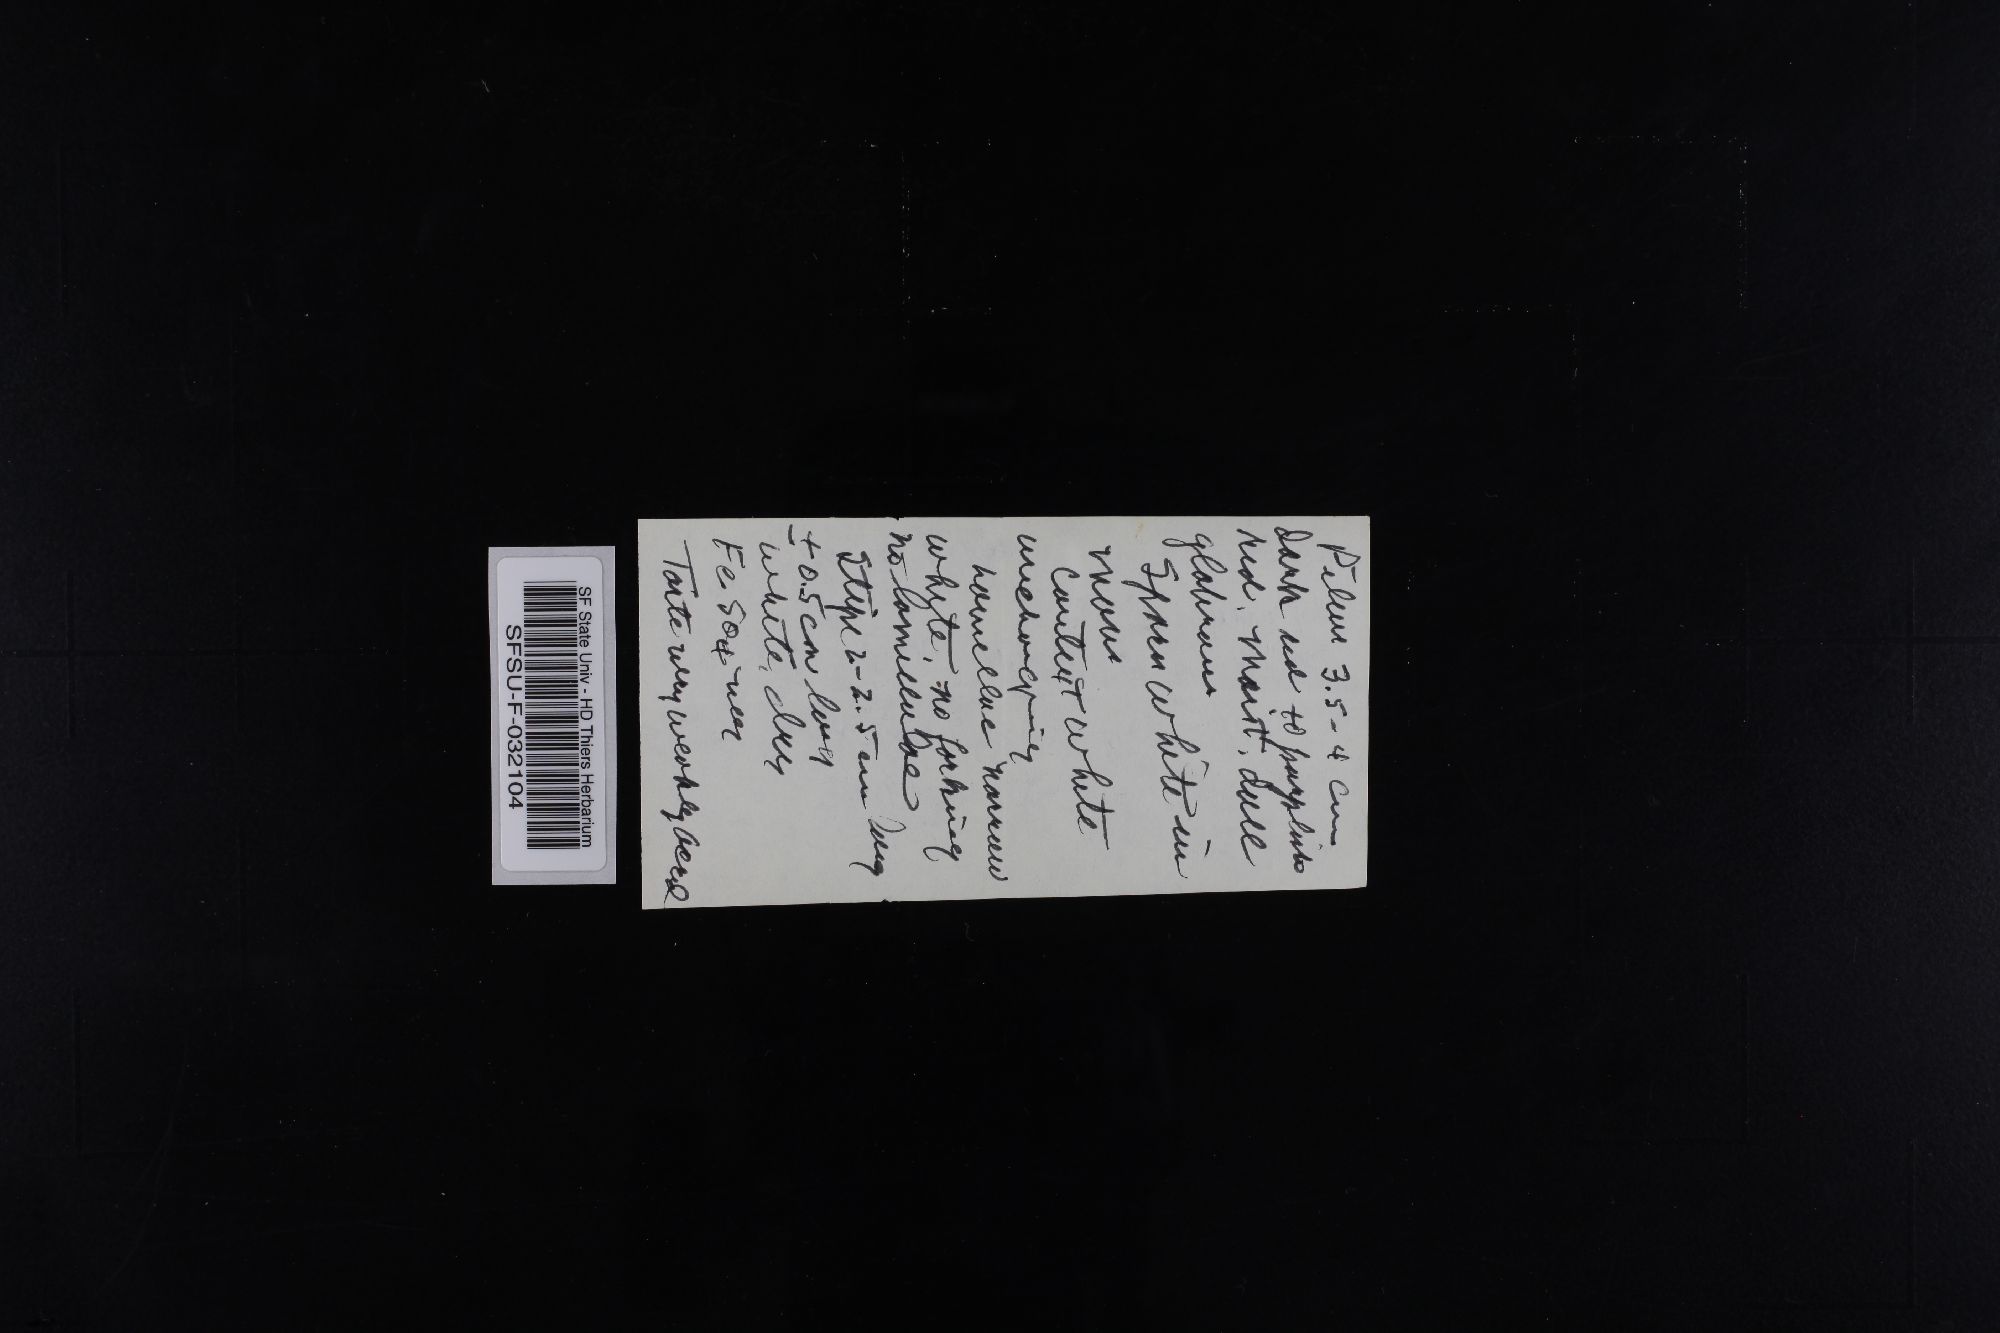 Pileus 3.5-4 cm
dark red to purplish
red, moist, dull
glabrous
Spores white in
mass
Context white
unchanging
Lamellae narrow
white, no forking
no lamellulae
Stipe 2-2.5 cm long
± 0.5 cm
white, dry
FeSO4 - neg
Taste very weakly acrid
SF State Univ - HD Thiers Herbarium
SFSU-F-032104